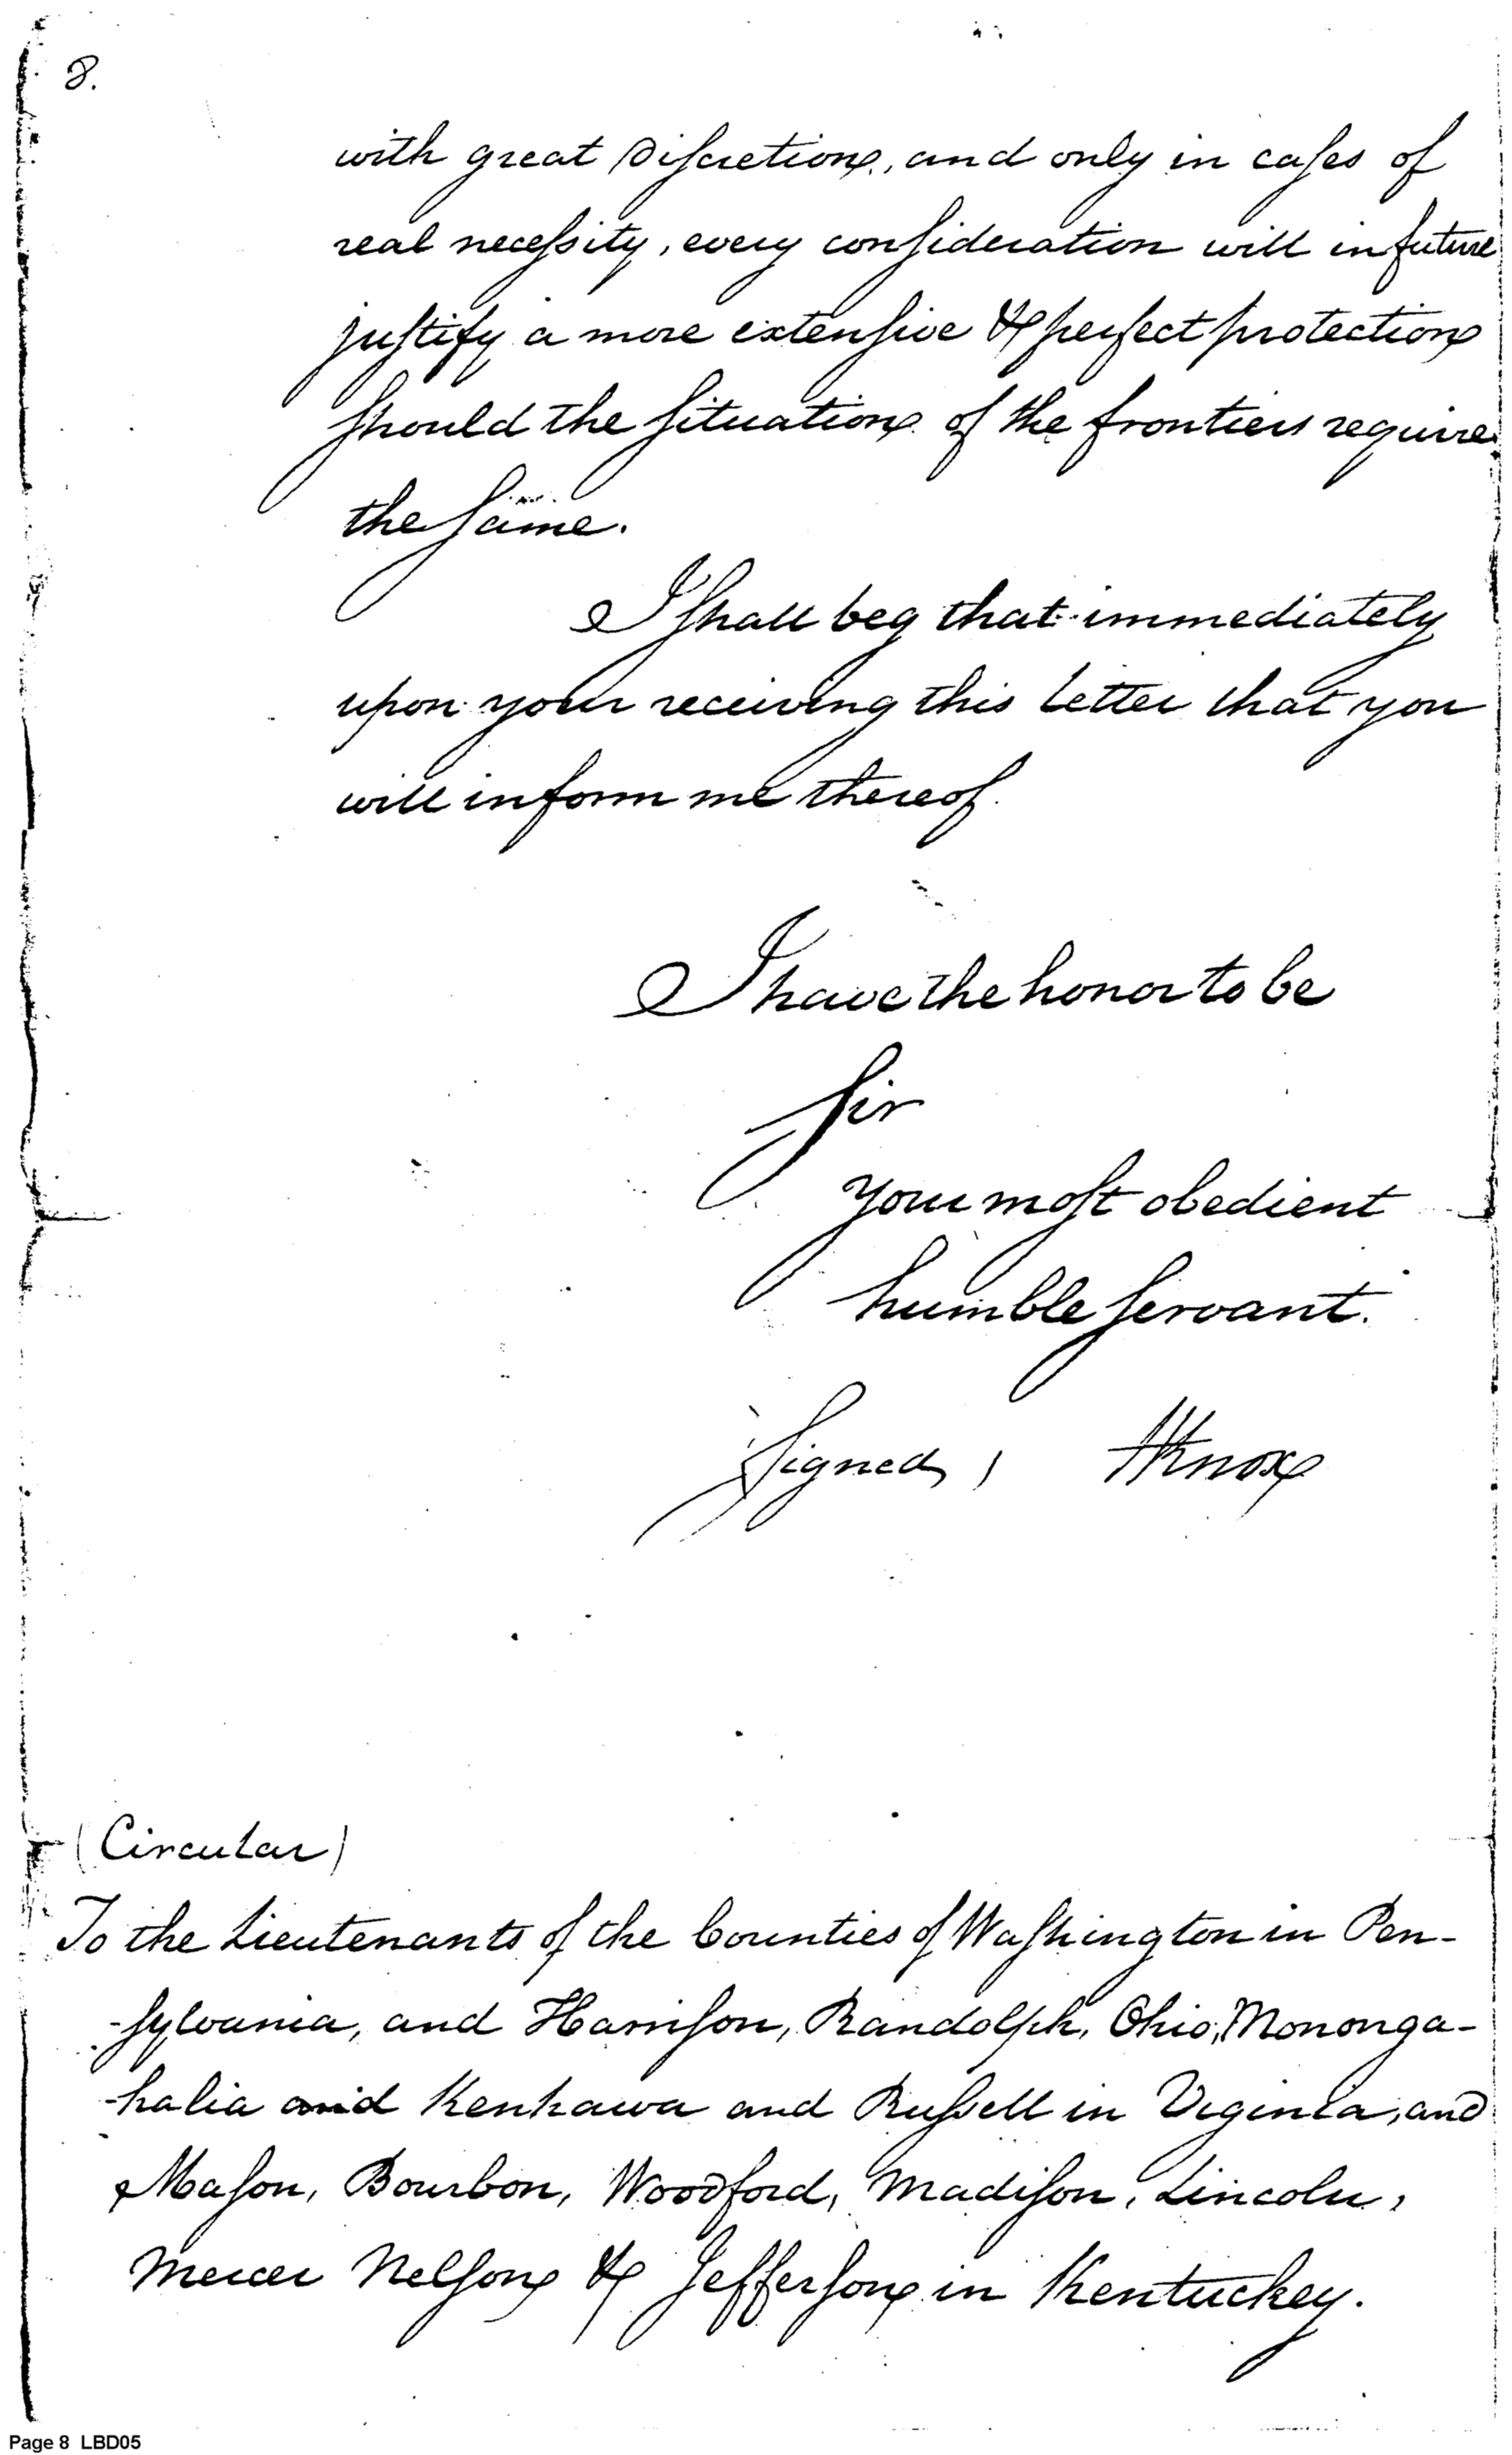 8.
with great Discretion, and only in cases of
real necessity, every consideration will in future
justify a more extensive & perfect protection
should the situation of the frontiers require
the same.
I shall beg that immediately
upon your receiving this letter that you
will inform me thereof.
I have the honor to be
Sir
your most obedient
humble servant.
Signed, HKnox
(Circular)
To the Lieutenants of the Counties of Washington in Pen-
-sylvania, and Harrison, Randolph, Ohio, Mononga-
-halia and Kenhawa and Russell in Viginia, and
Mason, Bourbon, Woodford, Madison, Lincoln,
Mercer Nelson & Jefferson in Kentuckey.
Page 8 LBD05